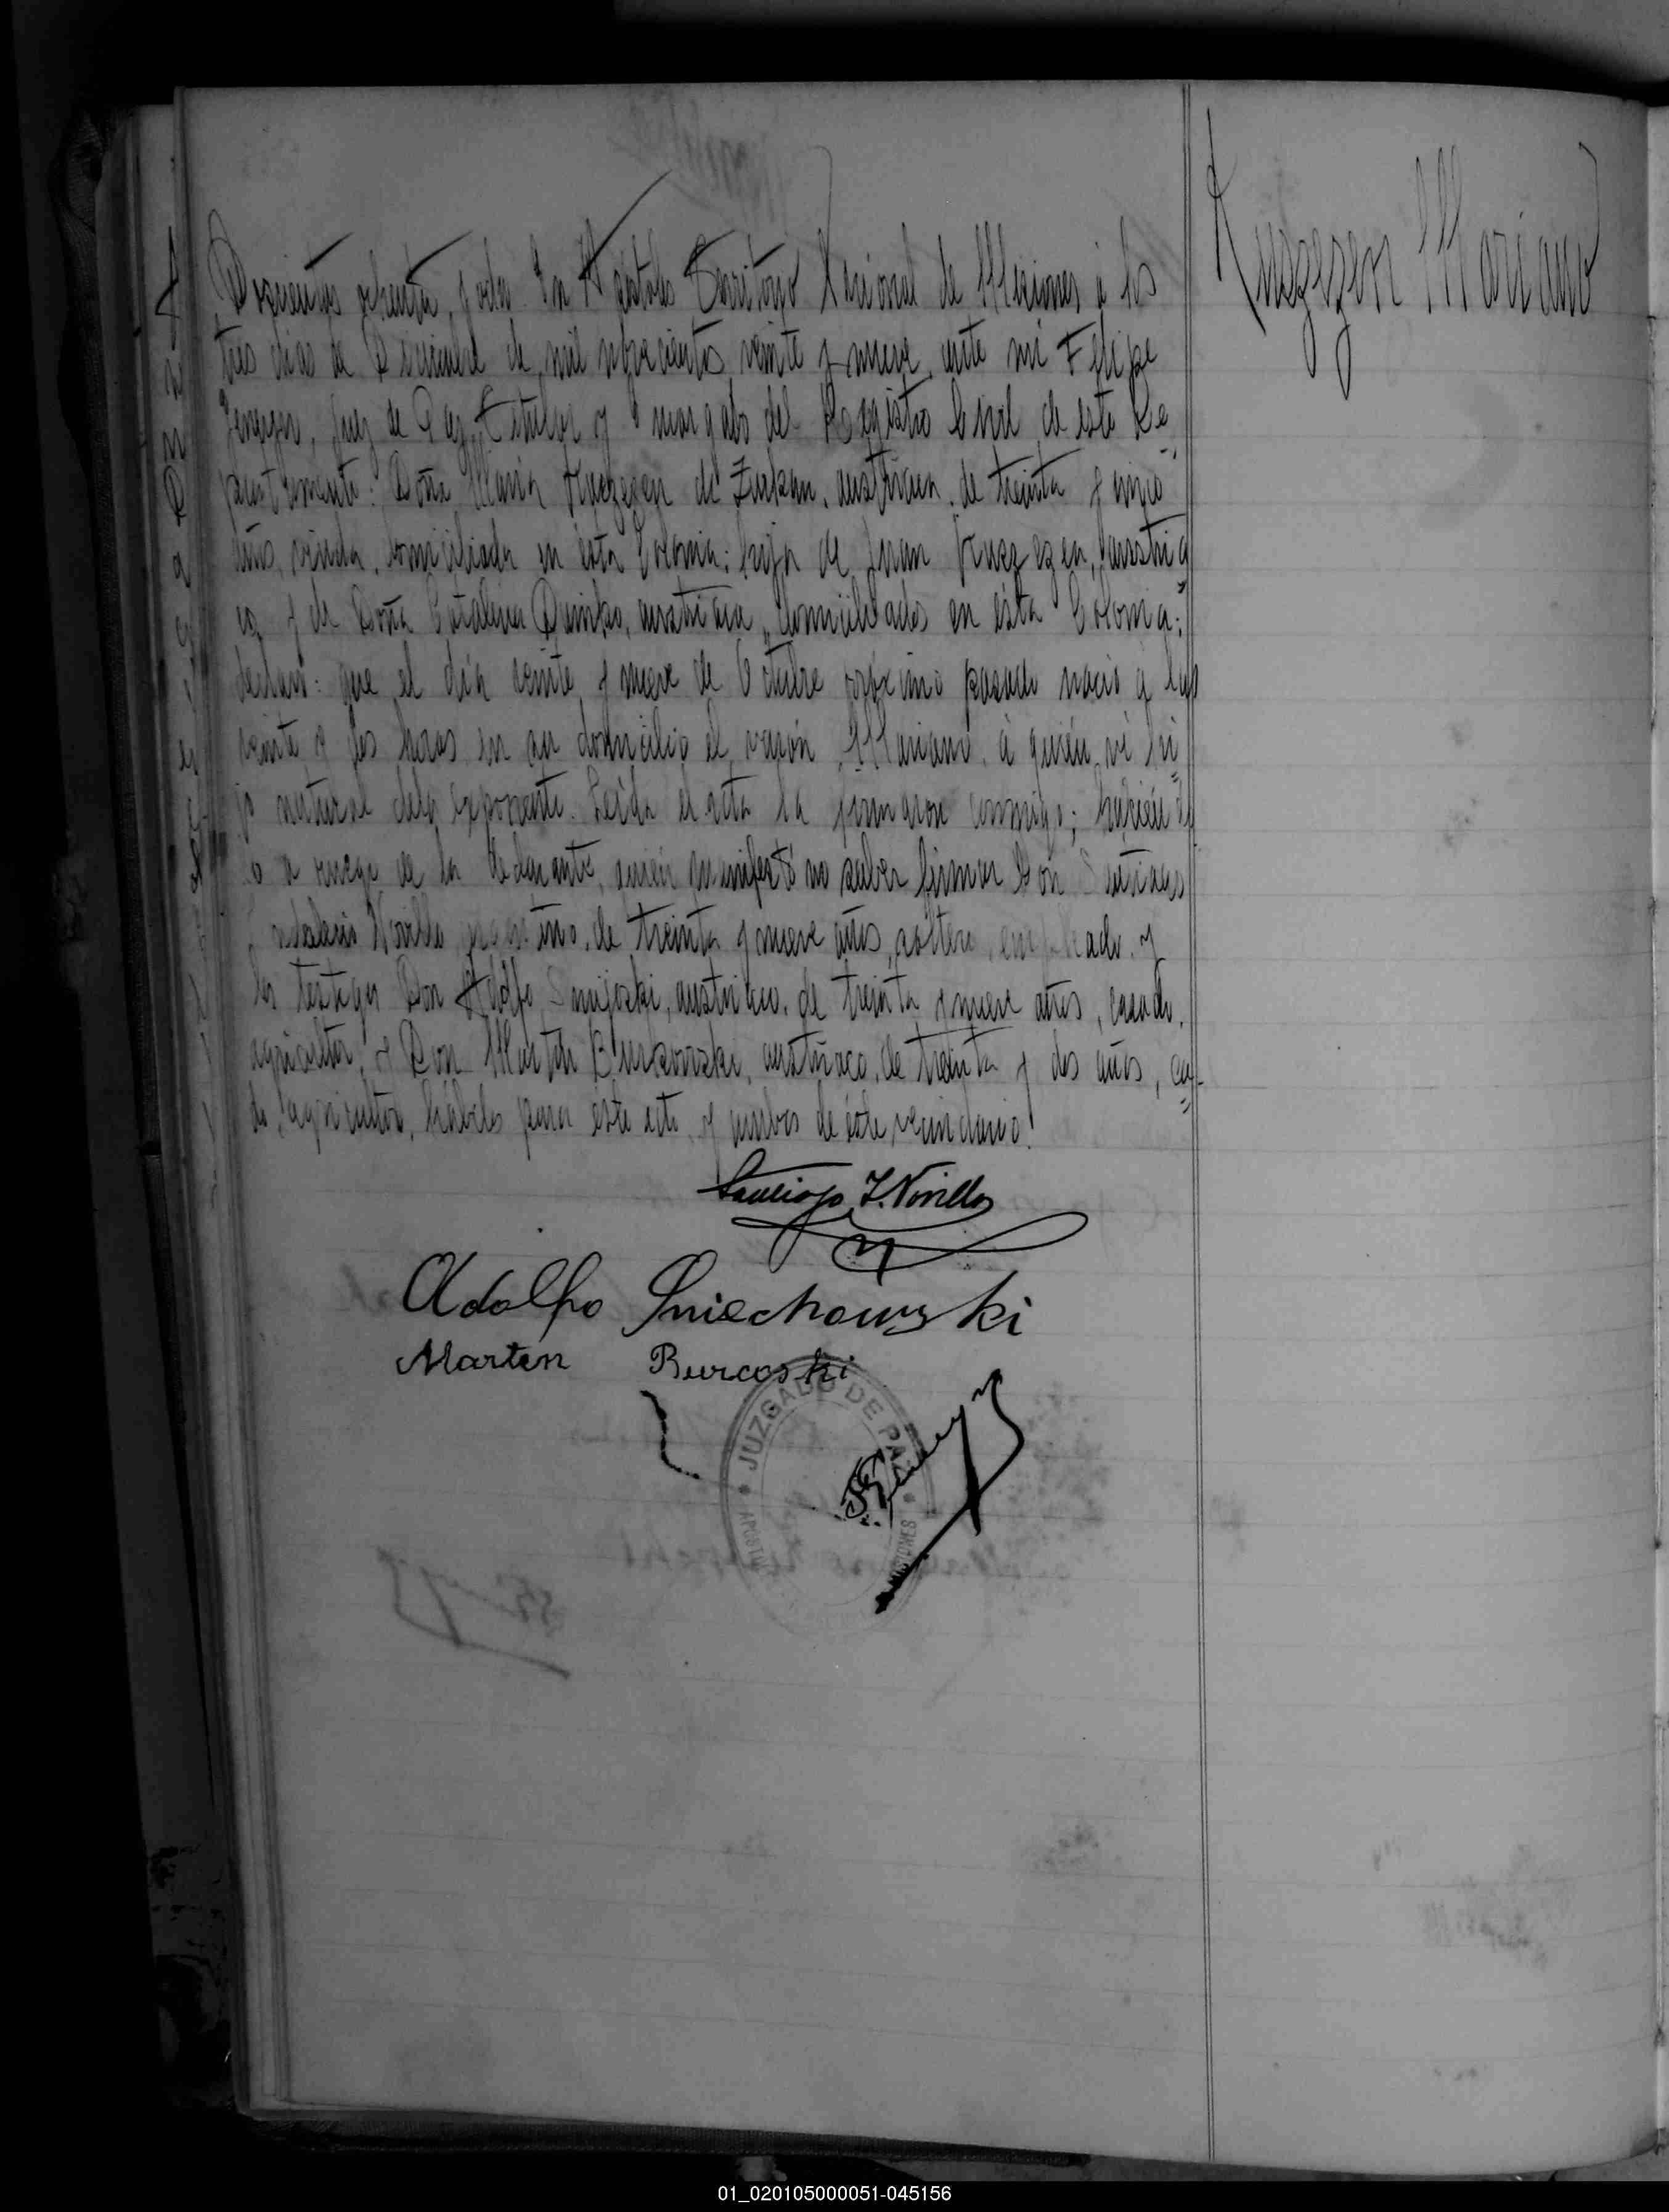 Kuszezen Mariano
Doscientos ochenta y ocho. En Apóstoles Territorio Nacional de Misiones á los
tres dias de Diciembre de mil novecientos veinte y nueve, ante mi Felipe
Juez de Paz Titular y Encargado del Registro Civil de este De
partamento: Doña María de austriaca, de treinta y cinco
años, viuda, domiciliada en ésta Colonia; hija de Juan austria
co y de Doña Catalina austriaca, domiciliados en ésta Colonia;
declaró: que el día veinte y nueve de Octubre próximo pasado nació á las
veinte y dos horas en su domicilio el varón Mariano, á quién ví hi
jo natural dela exponente. Leída el acta la firmaron conmigo; haciénd
o a ruego de la declarante, quién manifestó no saber firmar Don Santiago
Novillo, argentino, de treinta y nueve años, soltero, empleado y
los testigos Don Adolfo austriaco, de treinta y nueve años, casado,
agricultor, y Don Martín austriaco, de treinta y dos años, ca
do, agricultor, hábiles para éste acto, y ambos de éste vecindario.
Santiago I. Novillo
Adolfo Sniechowski
Marten Burcoski
JUZGADO DE PAZ
APOSTOLES MISIONES
01_020105000051-045156